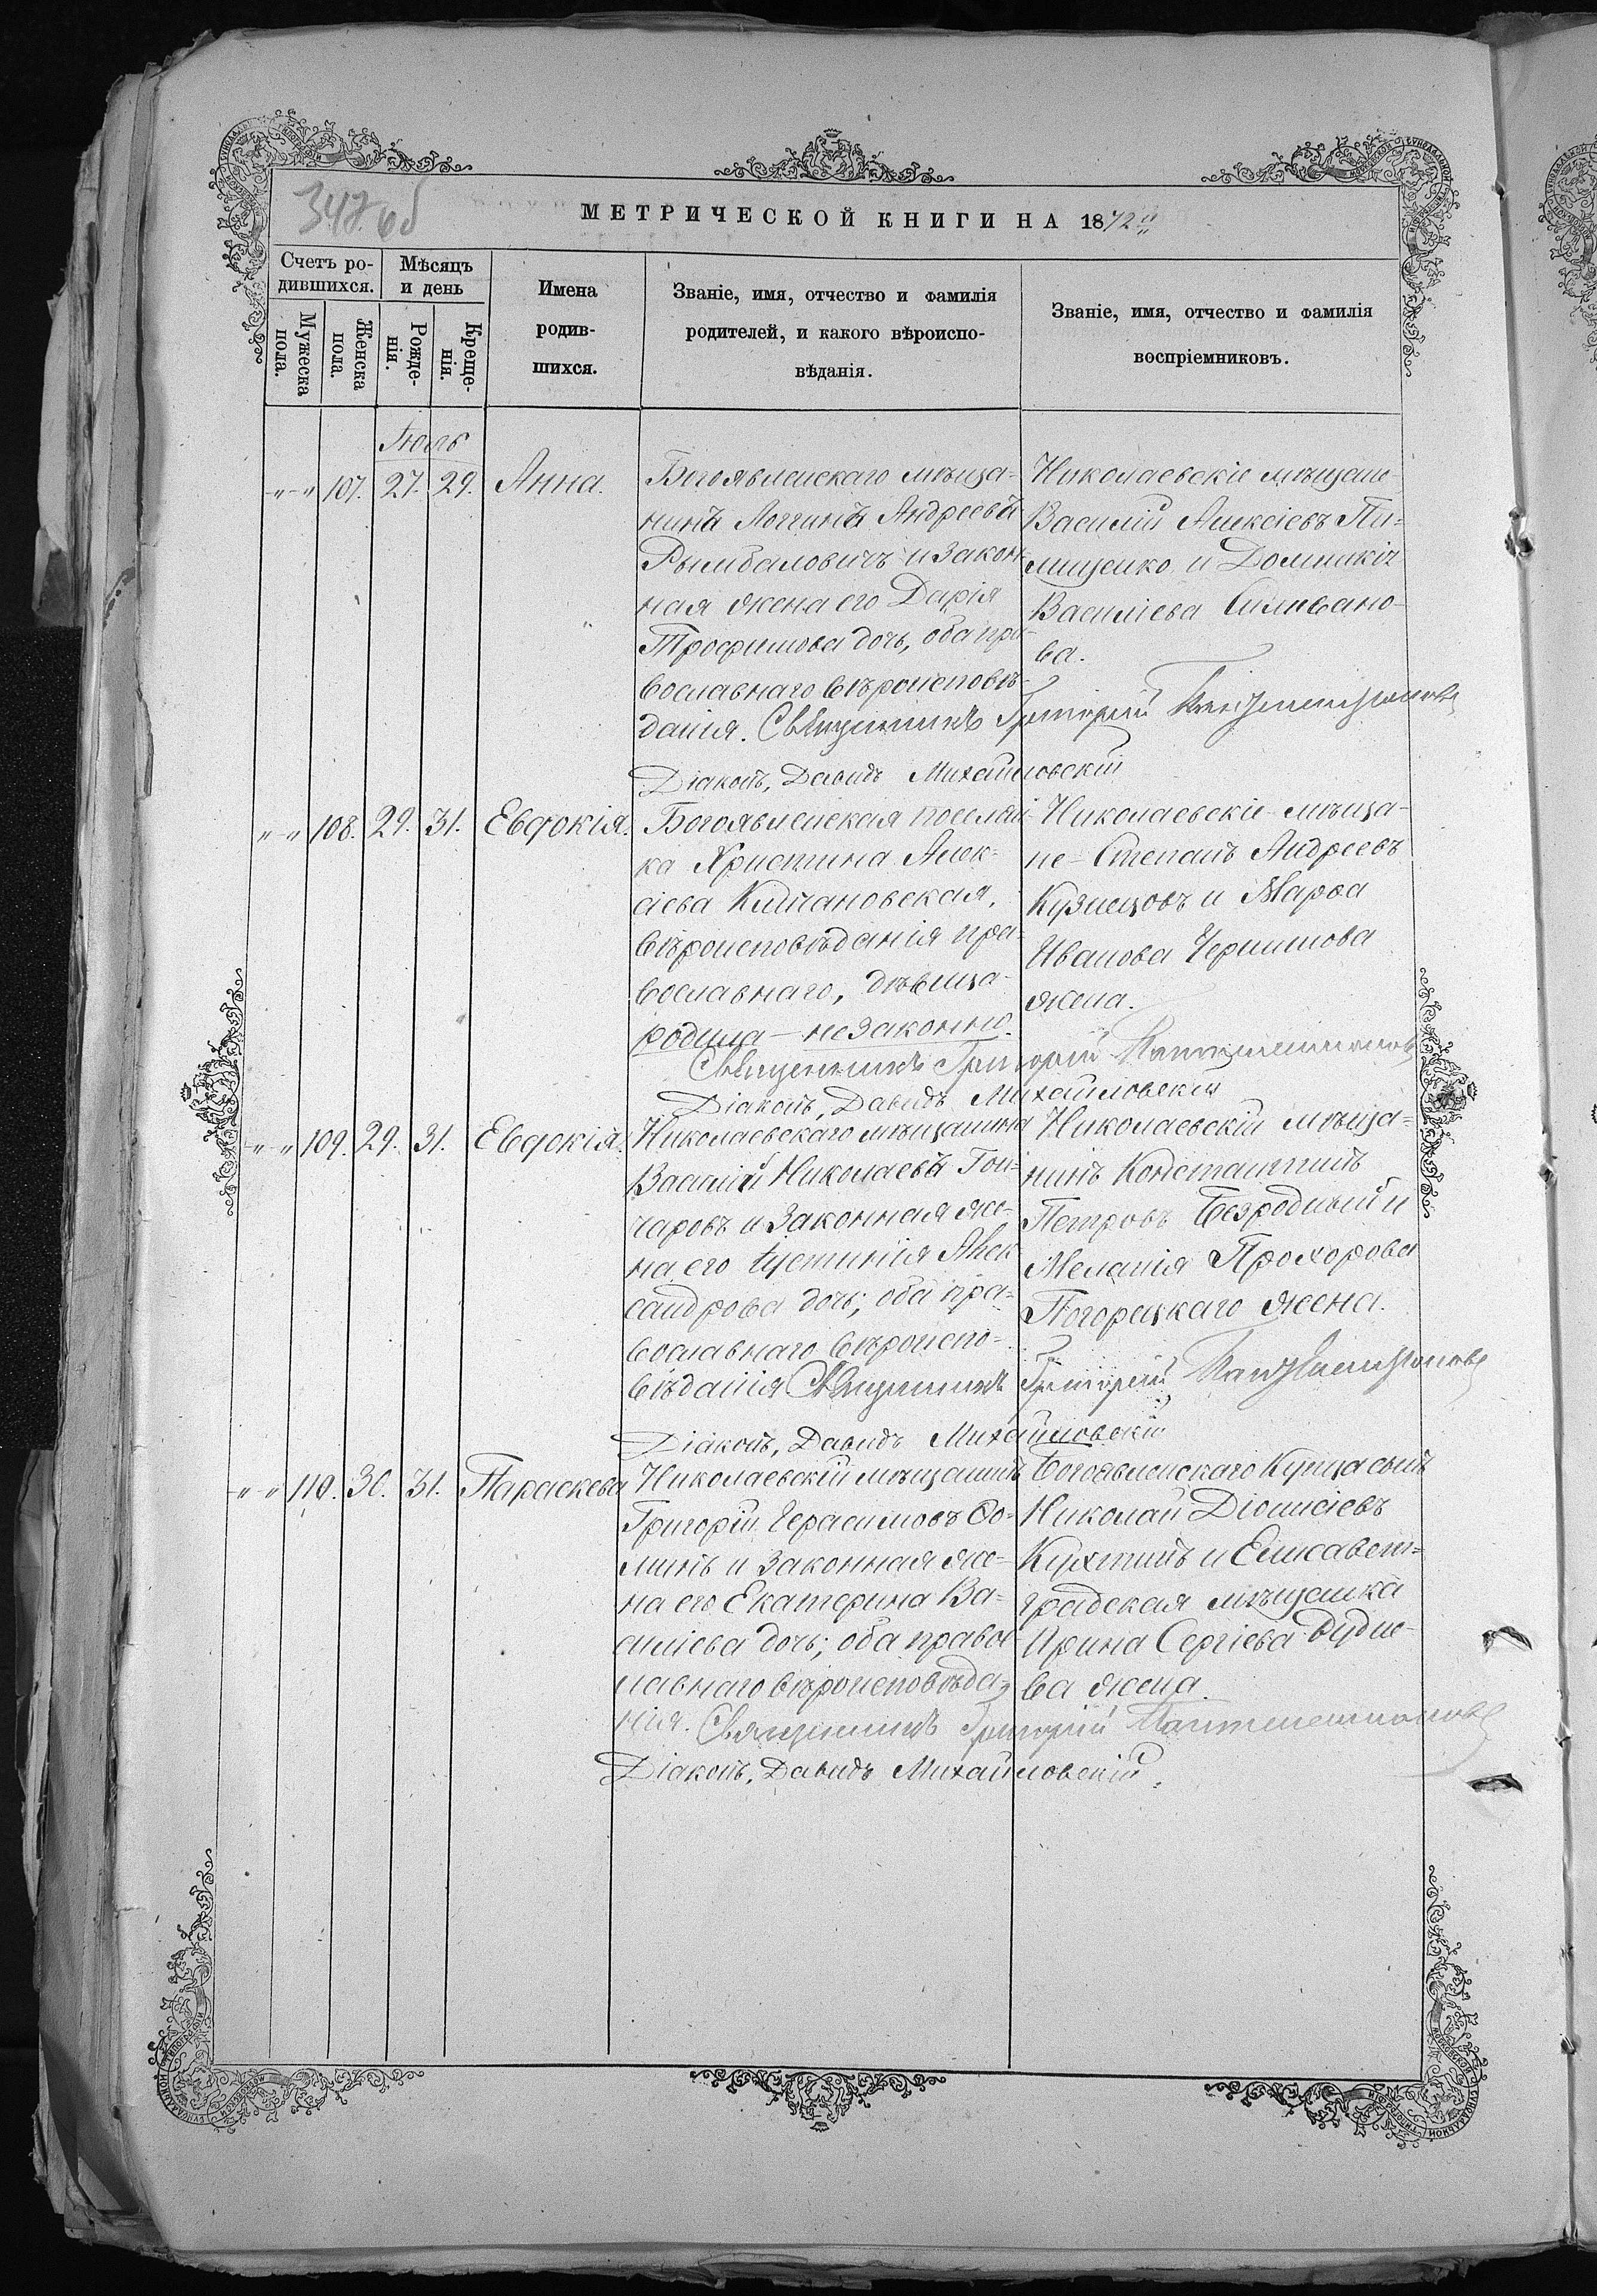 347 об
МЕТРИЧЕСКОЙ КНИГИ НА 1872й
Счетъ ро-
дившихся.
Мужеска
пола.
Женска
пола.
Мѣсяцъ
и день
Рожде-
нія.
Креще-
нія.
Имена
родив-
шихся.
Званіе, имя, отчество и фамилія
родителей, и какого вѣроиспо-
вѣданія.
Званіе, имя, отчество и фамилія
воспріемниковъ.
Іюль
-"-" 107. 27. 29. Анна.
Богоявленскаго мѣща-
нинъ Логгинъ Андреевъ
Рымбаловичъ и закон-
ная жена его Дарія
Трофимова дочь, оба пра-
вославнаго вѣроисповѣ-
данія. Священникъ Григорій
Діаконъ, Давидъ Михайловскій
Николаевскіе мѣщане
Василій Алексіевъ Пи-
лищенко и Домникія
Василіева Силивано-
ва.
"-" 108. 29. 31. Евдокія.
Богоявленская поселян-
ка Христина Алек-
сіева Килчановская,
вѣроисповѣданія пра-
вославнаго, дѣвица
родила — незаконно.
Священникъ Григорій
Діаконъ, Давидъ Михайловскій
Николаевскіе мѣща-
не Степанъ Андреевъ
Кузнецовъ и Марѳа
Иванова
жена.
"-" 109. 29. 31. Евдокія.
Николаевскаго мѣщанина
Василій Николаевъ Гон-
чаровъ и законная же-
на его Іустинія Алек-
сандрова дочь; оба пра-
вославнаго вѣроиспо-
вѣданія Священникъ Григорій
Діаконъ, Давидъ Михайловскій
Николаевскій мѣща-
нинъ Константинъ
Петровъ Безродный и
Меланія Прохорова
Погорецкаго жена.
-"-" 110. 30. 31. Параскева
Николаевскій мѣщанинъ
Григорій Герасимовъ Ѳо-
минъ и законная же-
на его Екатерина Ва-
силіева дочь; оба правос-
лавнаго вѣроисповѣда-
нія. Священникъ Григорій
Діаконъ, Давидъ Михайловскій.
Богоявленскаго купца сынъ
Николай Діонисіевъ
Кухтинъ и Елисавет-
градская мѣщанка
Ирина Сергіева Дудне-
ва жена.